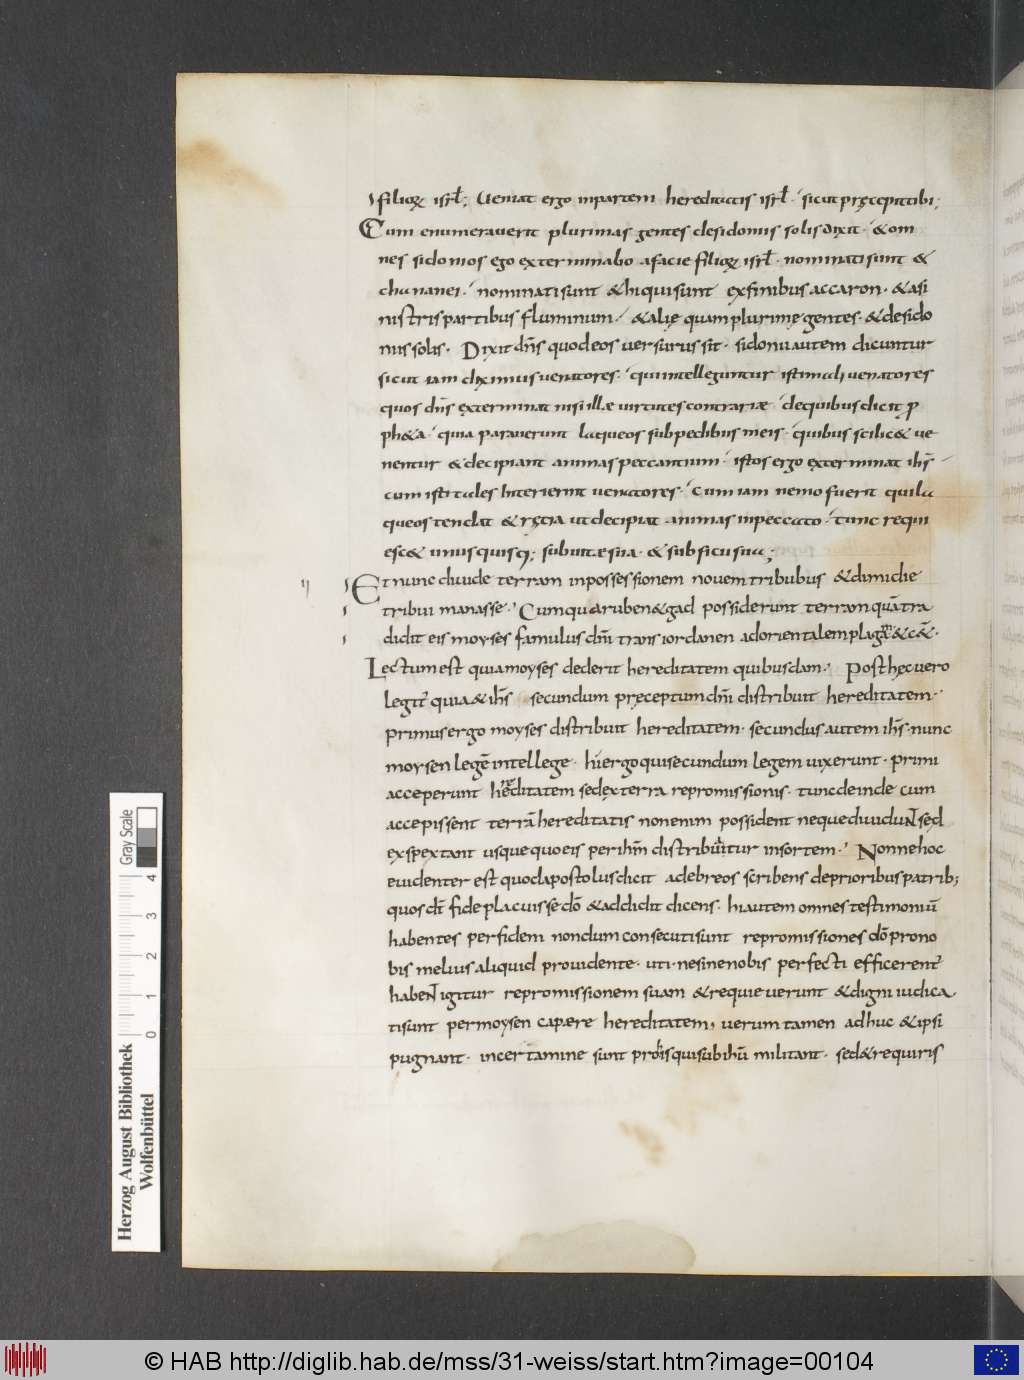 filioꝝ isrł; Veniat ergo inpartem hereditatis isrł · sicut pręcepi tibi;
Cum enumeraverit plurimas gentes desidoniis solis dixit · & om
nes sidonios ego exterminabo afacie filioꝝ isrł · nominati sunt &
chananei · nominatisunt & hi quisunt exfinibus accaron · & asi
nistris partibus fluminum · & alię quam plurimę gentes · & desido
niis solis · Dixit dn̄s quod eos versurus sit · sidonii autem dicuntur
sicut iam diximus venatores · qui intelleguntur isti mali venatores
quos dn̄s exterminat nisi illæ virtutes contrariæ · de quibus dicit ꝓ
ph&a · quia paraverunt laqueos subpedibus meis · quibus scilic& ve
nentur & decipiant animas peccantium · istos ergo exterminat ih̄s
cum isti tales interierint venatores · cum iam nemo fuerit qui la
queos tendat & rętia ut decipiat animas inpeccato · tunc requi
esc& unus quisq; sub vite sua · & sub ficu sua;
Et nunc divide terram inpossessionem novem tribubus & dimidie
tribui manasse · Cum qua ruben & gad possiderunt terram quā tra
didit eis moyses famulus dn̄i trans iordanen ad orientalem plagā & c&̄ ·
Lectum est quia moyses dederit hereditatem quibusdam · Post hęc vero
legit̄ quia & ih̄s secundum pręceptum dn̄i distribuit hereditatem ·
primus ergo moyses distribuit hereditatem · secundus autem ih̄s · nunc
moysen legē intellege · hi ergo qui secundum legem vixerunt · primi
acceperunt hereditatem sed ex terra repromissionis · tunc deinde cum
accepissent terrā hereditatis non enim possident neque dividunt sed
exspextant usque quo eis per ihm̄ distribuitur insortem · Nonne hoc
evidenter est quod apostolus dicit ad ebreos scribens de prioribus patrib;
quos dt̄ fide placuisse dō & addidit dicens · hi autem omnes testimoniū
habentes per fidem nondum consecuti sunt repromissiones dō pro no
bis melius aliquid providente · uti · ne sine nobis perfecti efficerent̄
habent igitur repromissionem suam & requieverunt & digni iudica
ti sunt per moysen capære hereditatem, verum tamen adhuc & ipsi
pugnant · in certamine sunt pro his qui sub ihū militant · sed & requiris
Herzog August Bibliothek
Wolfenbüttel
0 1 2 3 4
Gray Scale
© HAB http://diglib.hab.de/mss/31-weiss/start.htm?image=00104